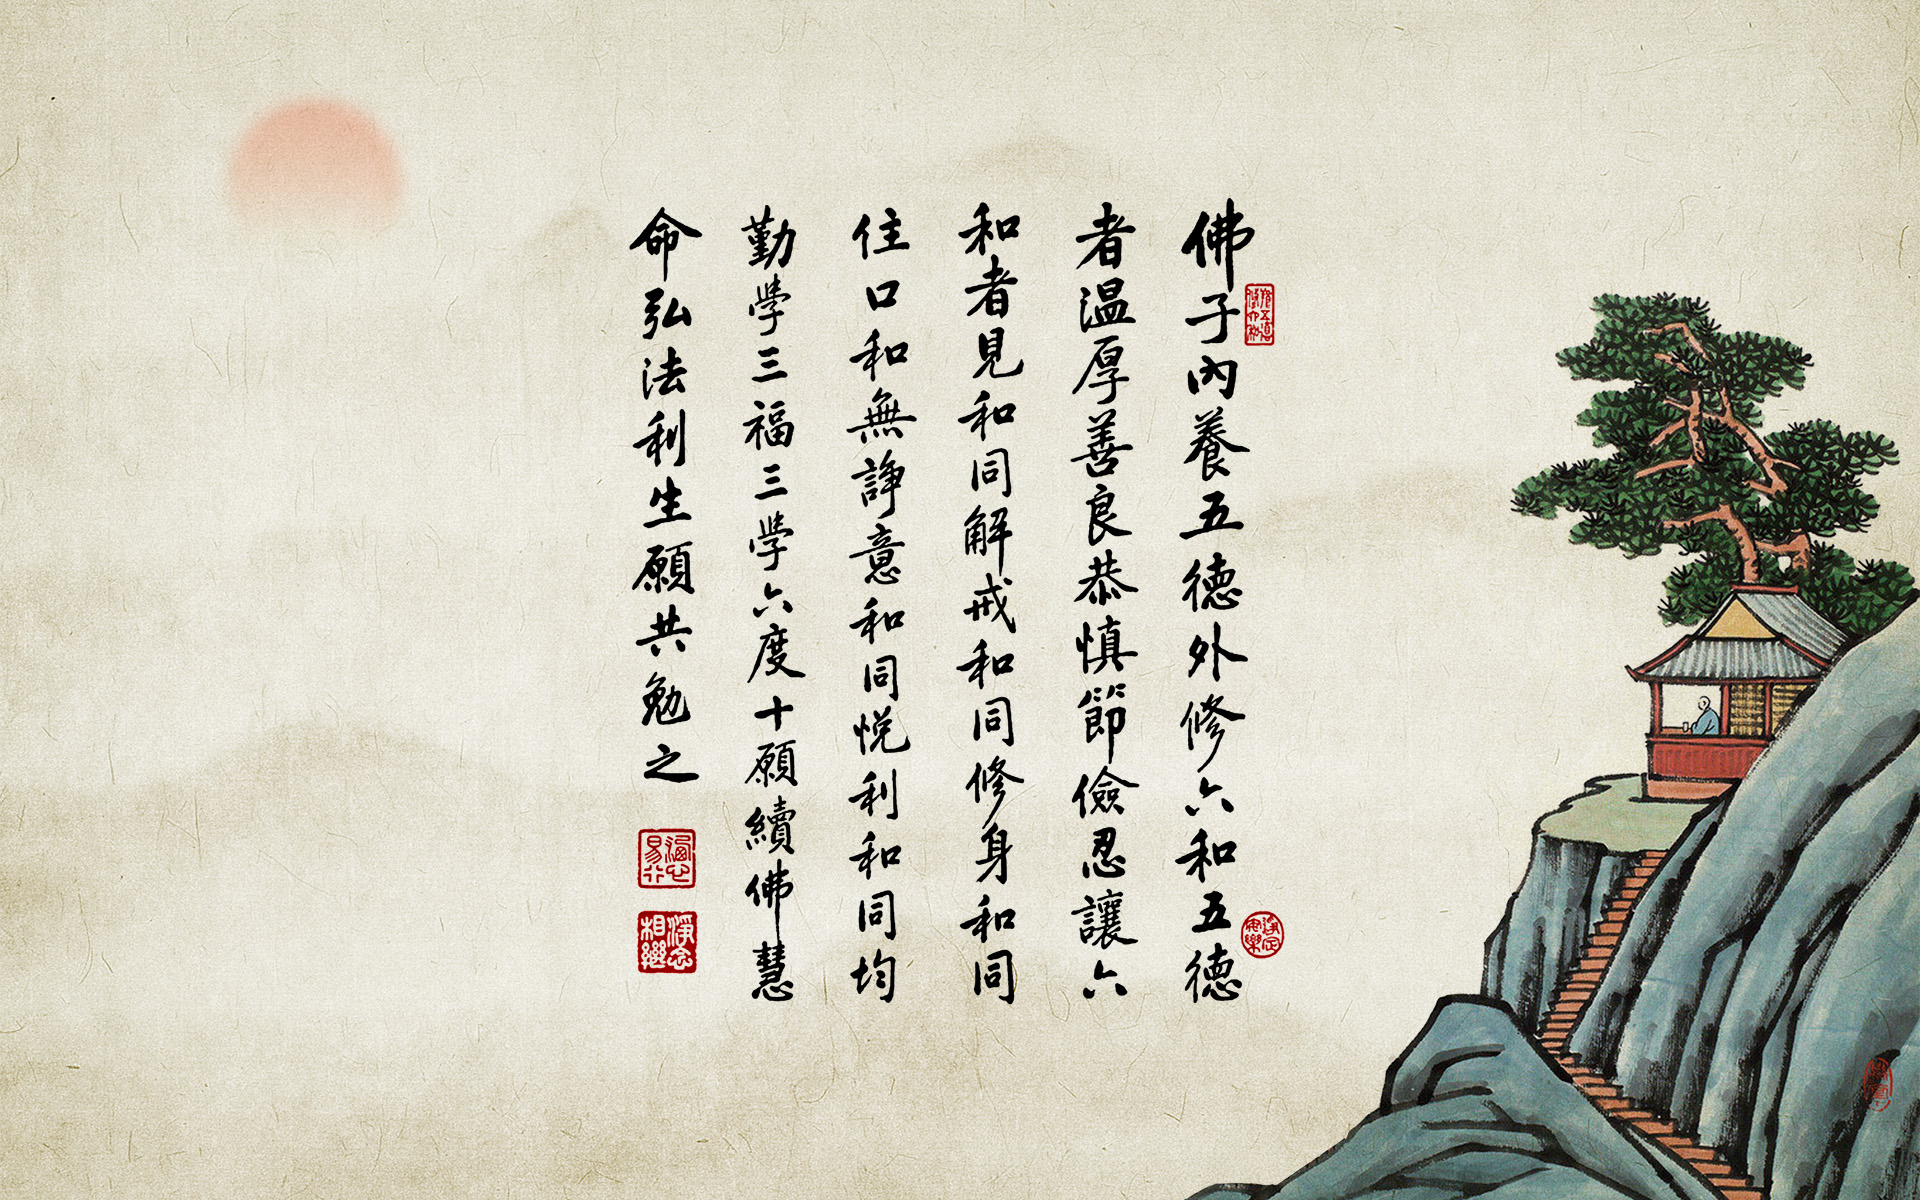 佛子內養五德外修六和五德
者温厚善良恭慎節儉忍讓六
和者見和同解戒和同修身和同
住口和無諍意和同悅利和同均
勤學三福三學六度十願續佛慧
命弘法利生願共勉之
淨念
相繼